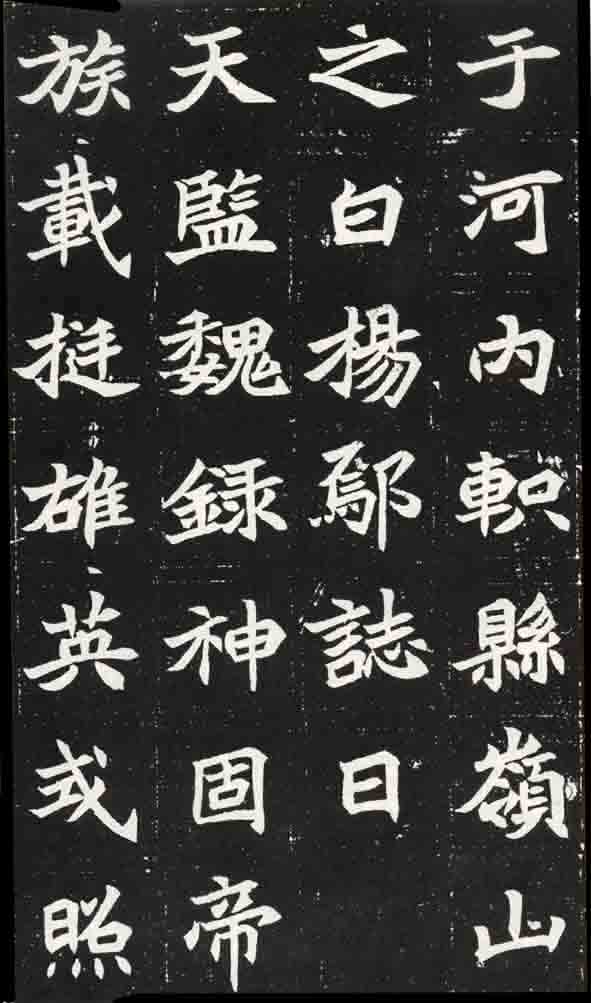 于河內軹縣嶺山
之白楊鄔誌曰
天監魏錄神固帝
族載挺雄英或照